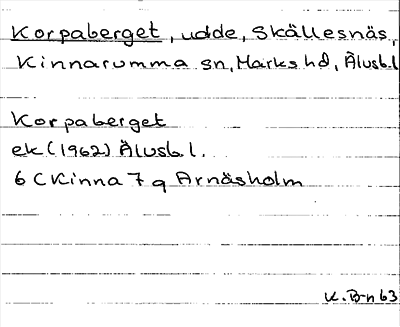 Korpaberget, udde, Skällesnäs,
Kinnarumma sn, Marks hd, Älvsb.l
Korpaberget
ek (1962) Älvsb.l.
6 C Kinna 7 q Arnäsholm
K. Bn 63